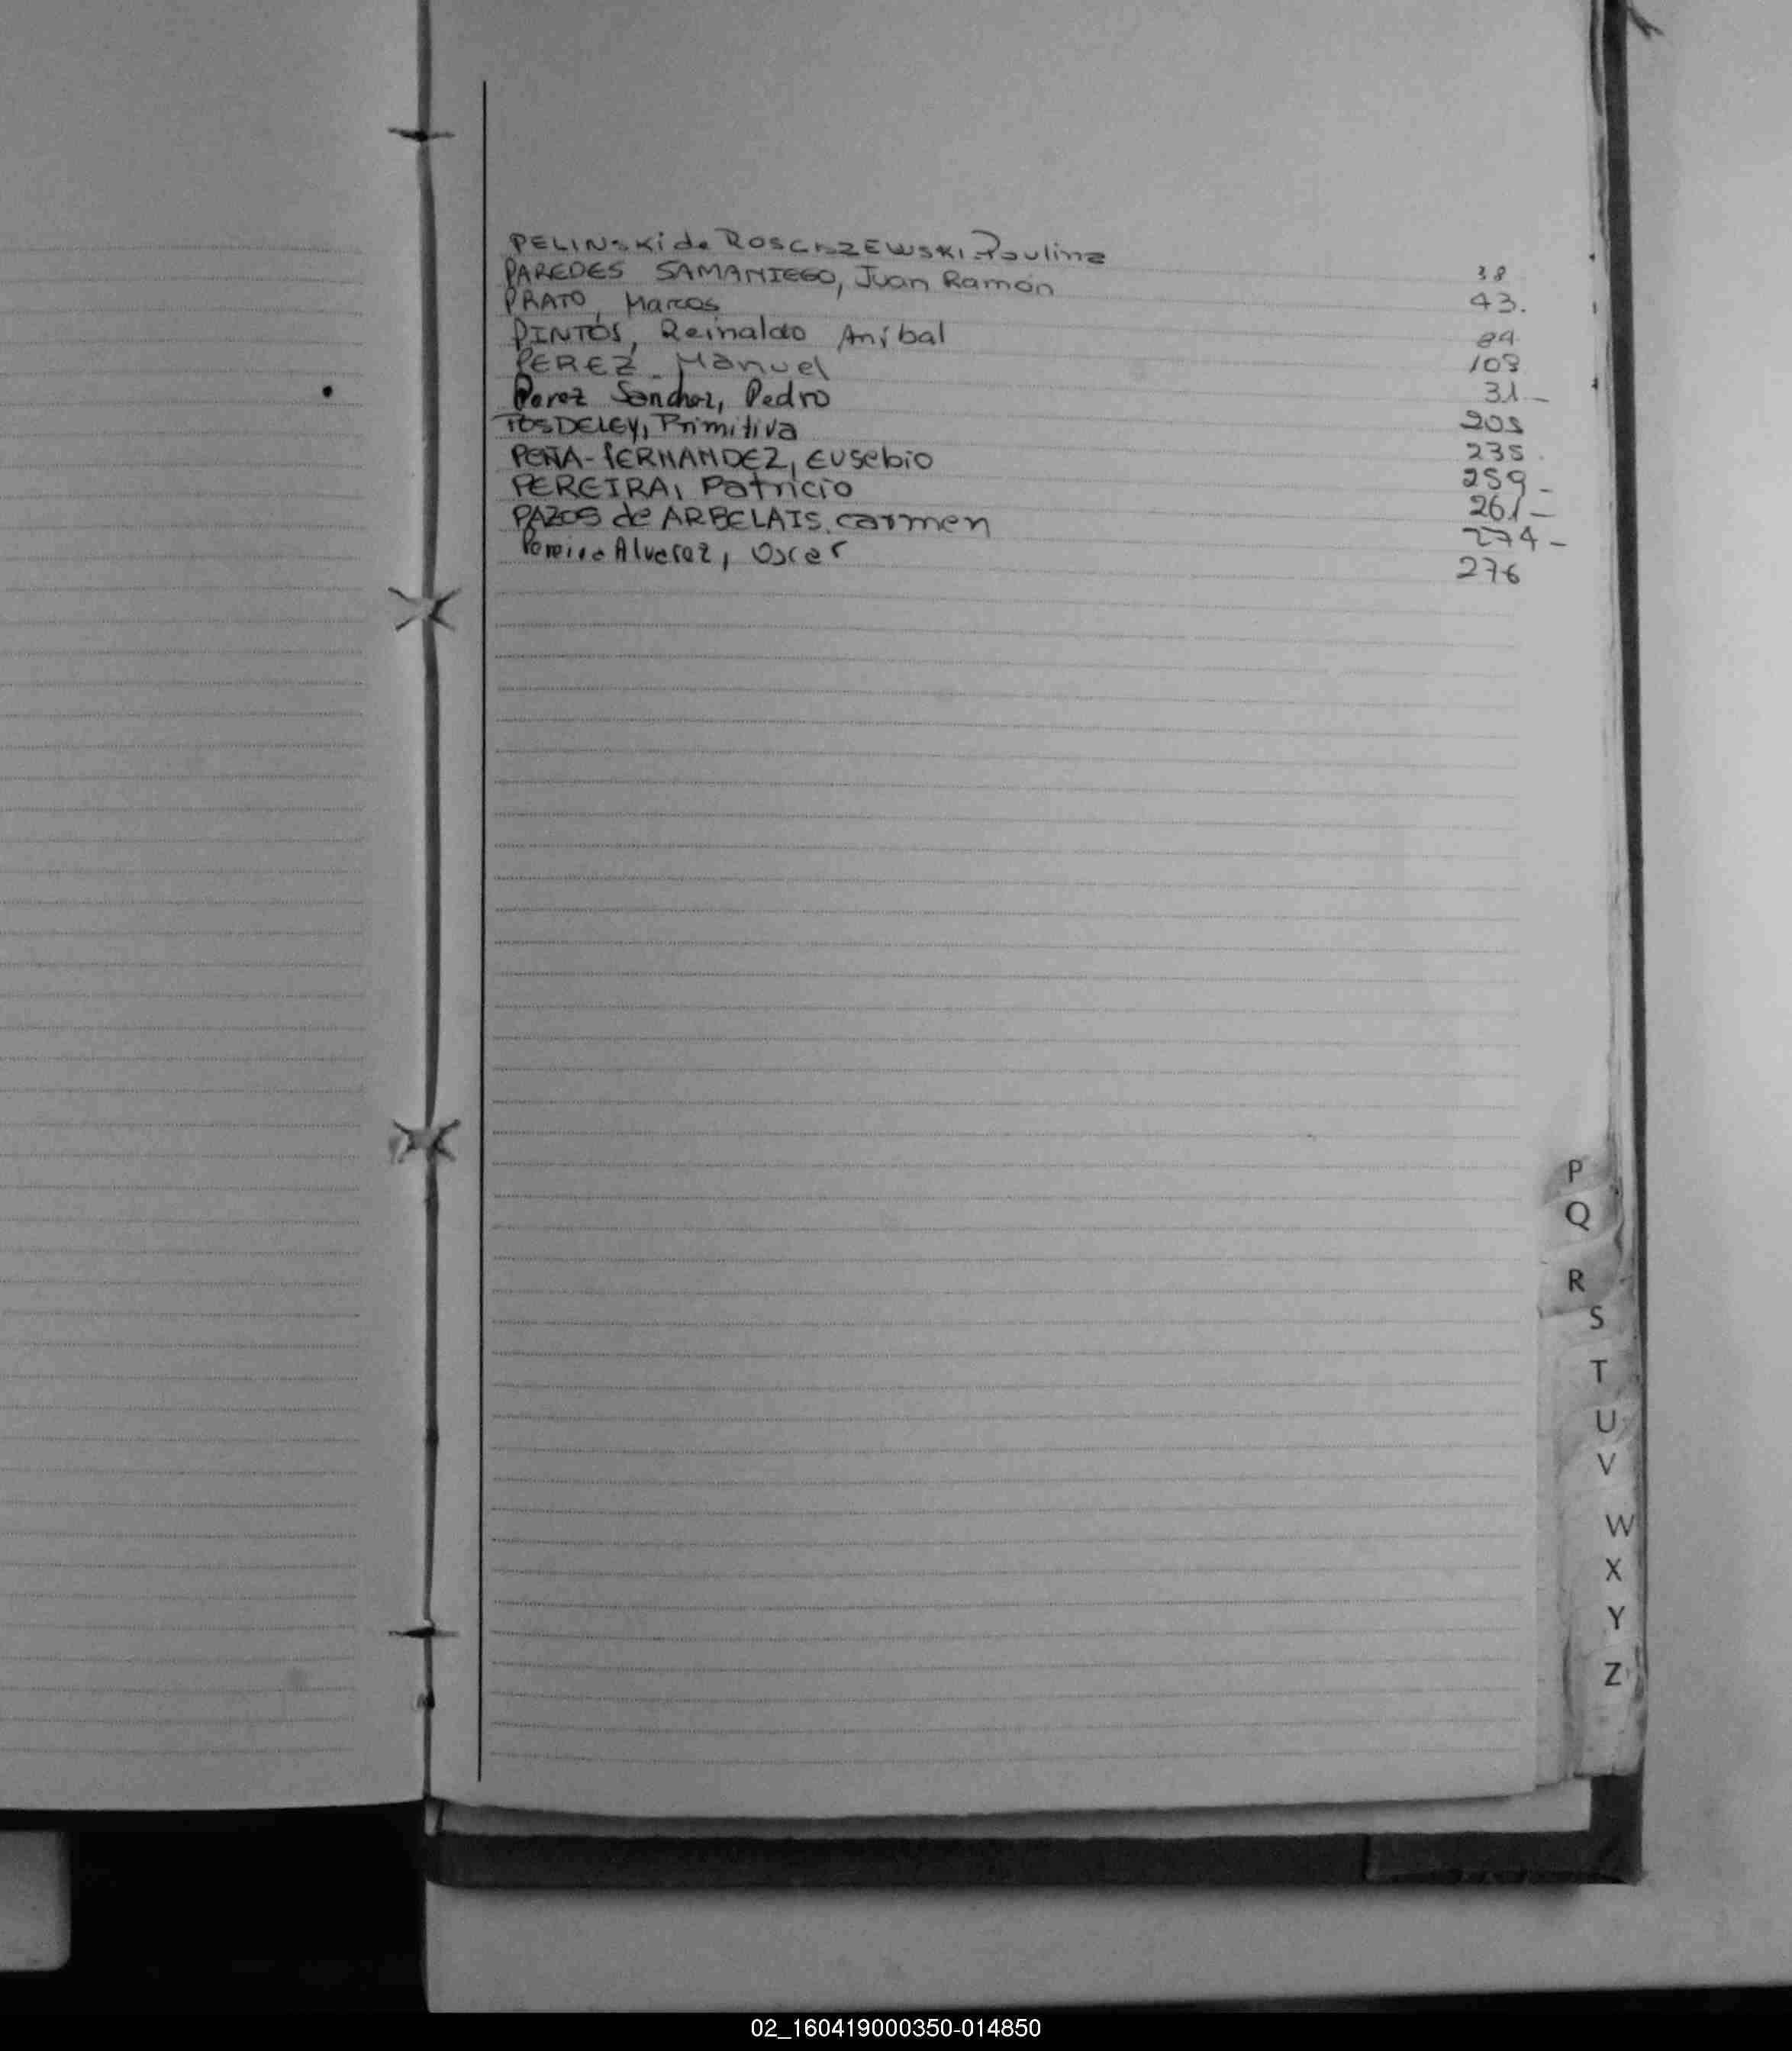 PELINSKI de ROSCISZEWSKI-Paulina 38
PAREDES SAMANIEGO, Juan Ramón 43.
PRATO, Marcos 84
PINTOS, Reinaldo Aníbal 108
PEREZ - Manuel 31-
Perez Sanchez, Pedro 205
POSDELEY, Primitiva 235.
PEÑA-FERNANDEZ, Eusebio 259-
PEREIRA, Patricio 261-
PAZOS de ARBELAIS, Carmen 274-
Pereira Alverez, Oscar 276
P
Q
R
S
T
U
V
W
X
Y
Z
02_160419000350-014850